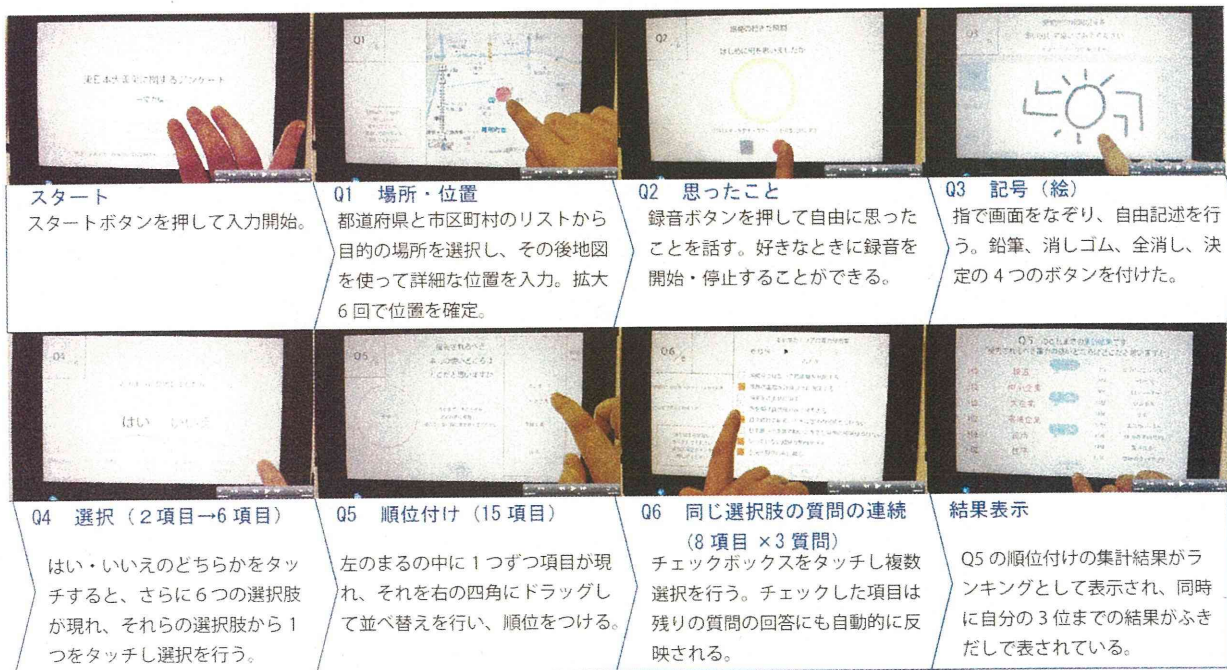 東日本大震災に関するアンケート
Q1
Q2
はじめに何を思いましたか
Q3
スタート
スタートボタンを押して入力開始。
Q1 場所・位置
都道府県と市区町村のリストから
目的の場所を選択し、その後地図
を使って詳細な位置を入力。拡大
6回で位置を確定。
Q2 思ったこと
録音ボタンを押して自由に思った
ことを話す。好きなときに録音を
開始・停止することができる。
Q3 記号（絵）
指で画面をなぞり、自由記述を行
う。鉛筆、消しゴム、全消し、決
定の4つのボタンを付けた。
Q4
はい いいえ
Q5
Q6
Q5
Q4 選択（2項目→6項目）
はい・いいえのどちらかをタッ
チすると、さらに6つの選択肢
が現れ、それらの選択肢から1
つをタッチし選択を行う。
Q5 順位付け（15項目）
左のまるの中に1つずつ項目が現
れ、それを右の四角にドラッグし
て並べ替えを行い、順位をつける。
Q6 同じ選択肢の質問の連続
（8項目×3質問）
チェックボックスをタッチし複数
選択を行う。チェックした項目は
残りの質問の回答にも自動的に反
映される。
結果表示
Q5の順位付けの集計結果がラ
ンキングとして表示され、同時
に自分の3位までの結果がふき
だしで表されている。